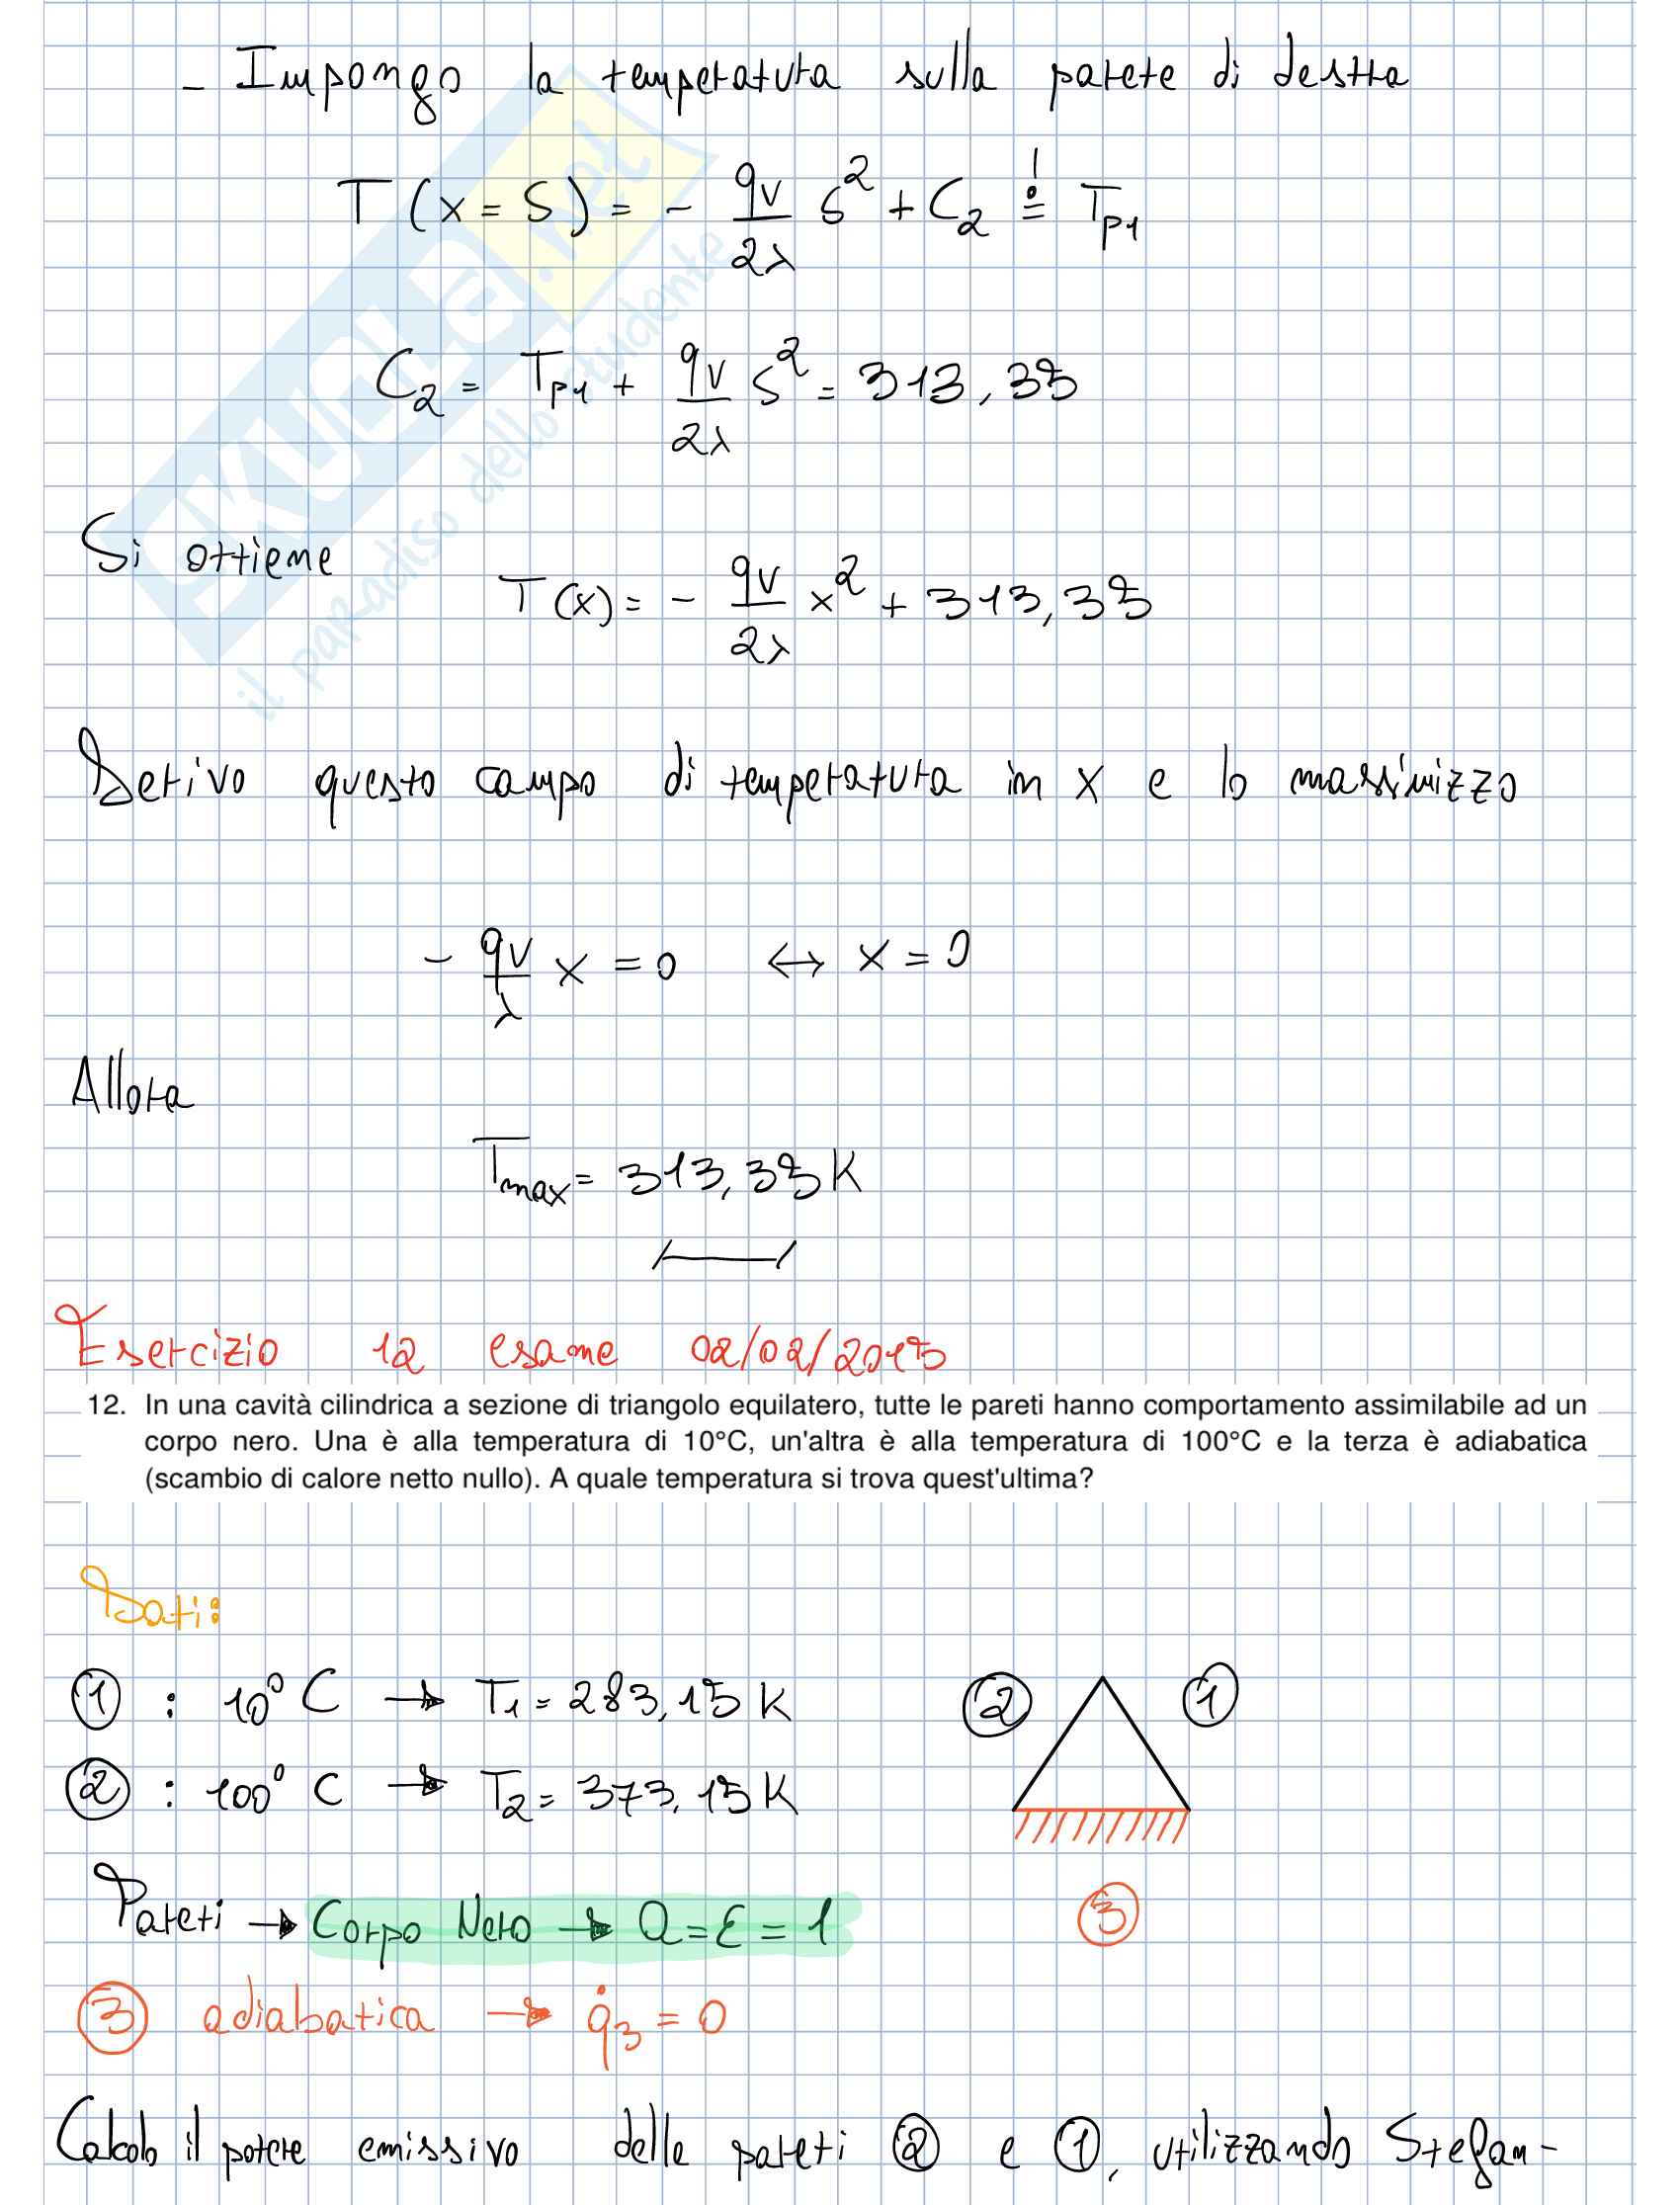 - Impongo la temperatura sulla parete di destra
T(x=S) = - qv/2λ S² + C₂ != Tp1
C₂ = Tp1 + qv/2λ S² = 313,35
Si ottiene
T(x) = - qv/2λ x² + 313,35
Derivo questo campo di temperatura in x e lo massimizzo
- qv/λ x = 0 ↔ x = 0
Allora
Tmax = 313,35 K
Esercizio 12 esame 02/02/2015
12. In una cavità cilindrica a sezione di triangolo equilatero, tutte le pareti hanno comportamento assimilabile ad un
corpo nero. Una è alla temperatura di 10°C, un'altra è alla temperatura di 100°C e la terza è adiabatica
(scambio di calore netto nullo). A quale temperatura si trova quest'ultima?
Dati:
① : 10° C → T₁ = 283,15 K
② : 100° C → T₂ = 373,15 K
② ①
Pareti → Corpo Nero → a = ε = 1
③
③ adiabatica → q̇₃ = 0
Calcolo il potere emissivo delle pareti ② e ①, utilizzando Stefan-
SKUOLA.net
il paradiso dello studente